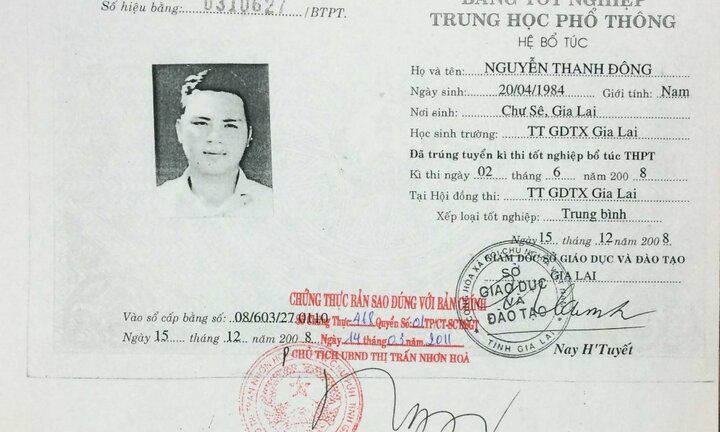 BẰNG TỐT NGHIỆP
TRUNG HỌC PHỔ THÔNG
HỆ BỔ TÚC
Số hiệu bằng: 0310627 /BTPT.
Họ và tên: NGUYỄN THANH ĐÔNG
Ngày sinh: 20/04/1984 Giới tính: Nam
Nơi sinh: Chư Sê, Gia Lai
Học sinh trường: TT GDTX Gia Lai
Đã trúng tuyển kì thi tốt nghiệp bổ túc THPT
Kì thi ngày 02 tháng 6 năm 2008
Tại Hội đồng thi: TT GDTX Gia Lai
Xếp loại tốt nghiệp: Trung bình
Ngày 15 tháng 12 năm 2008.
GIÁM ĐỐC SỞ GIÁO DỤC VÀ ĐÀO TẠO
GIA LAI
SỞ
GIÁO DỤC
VÀ
ĐÀO TẠO
TỈNH GIA LAI
Nay H'Tuyết
Vào sổ cấp bằng số: 08/603/27.0110
Ngày 15 tháng 12 năm 2008
CHỨNG THỰC BẢN SAO ĐÚNG VỚI BẢN CHÍNH
Số Chứng Thực 468 Quyển Số: 01 TP/CT-SCT/SGT
Ngày 14 tháng 03 năm 2011
CHỦ TỊCH UBND THỊ TRẤN NHƠN HOÀ